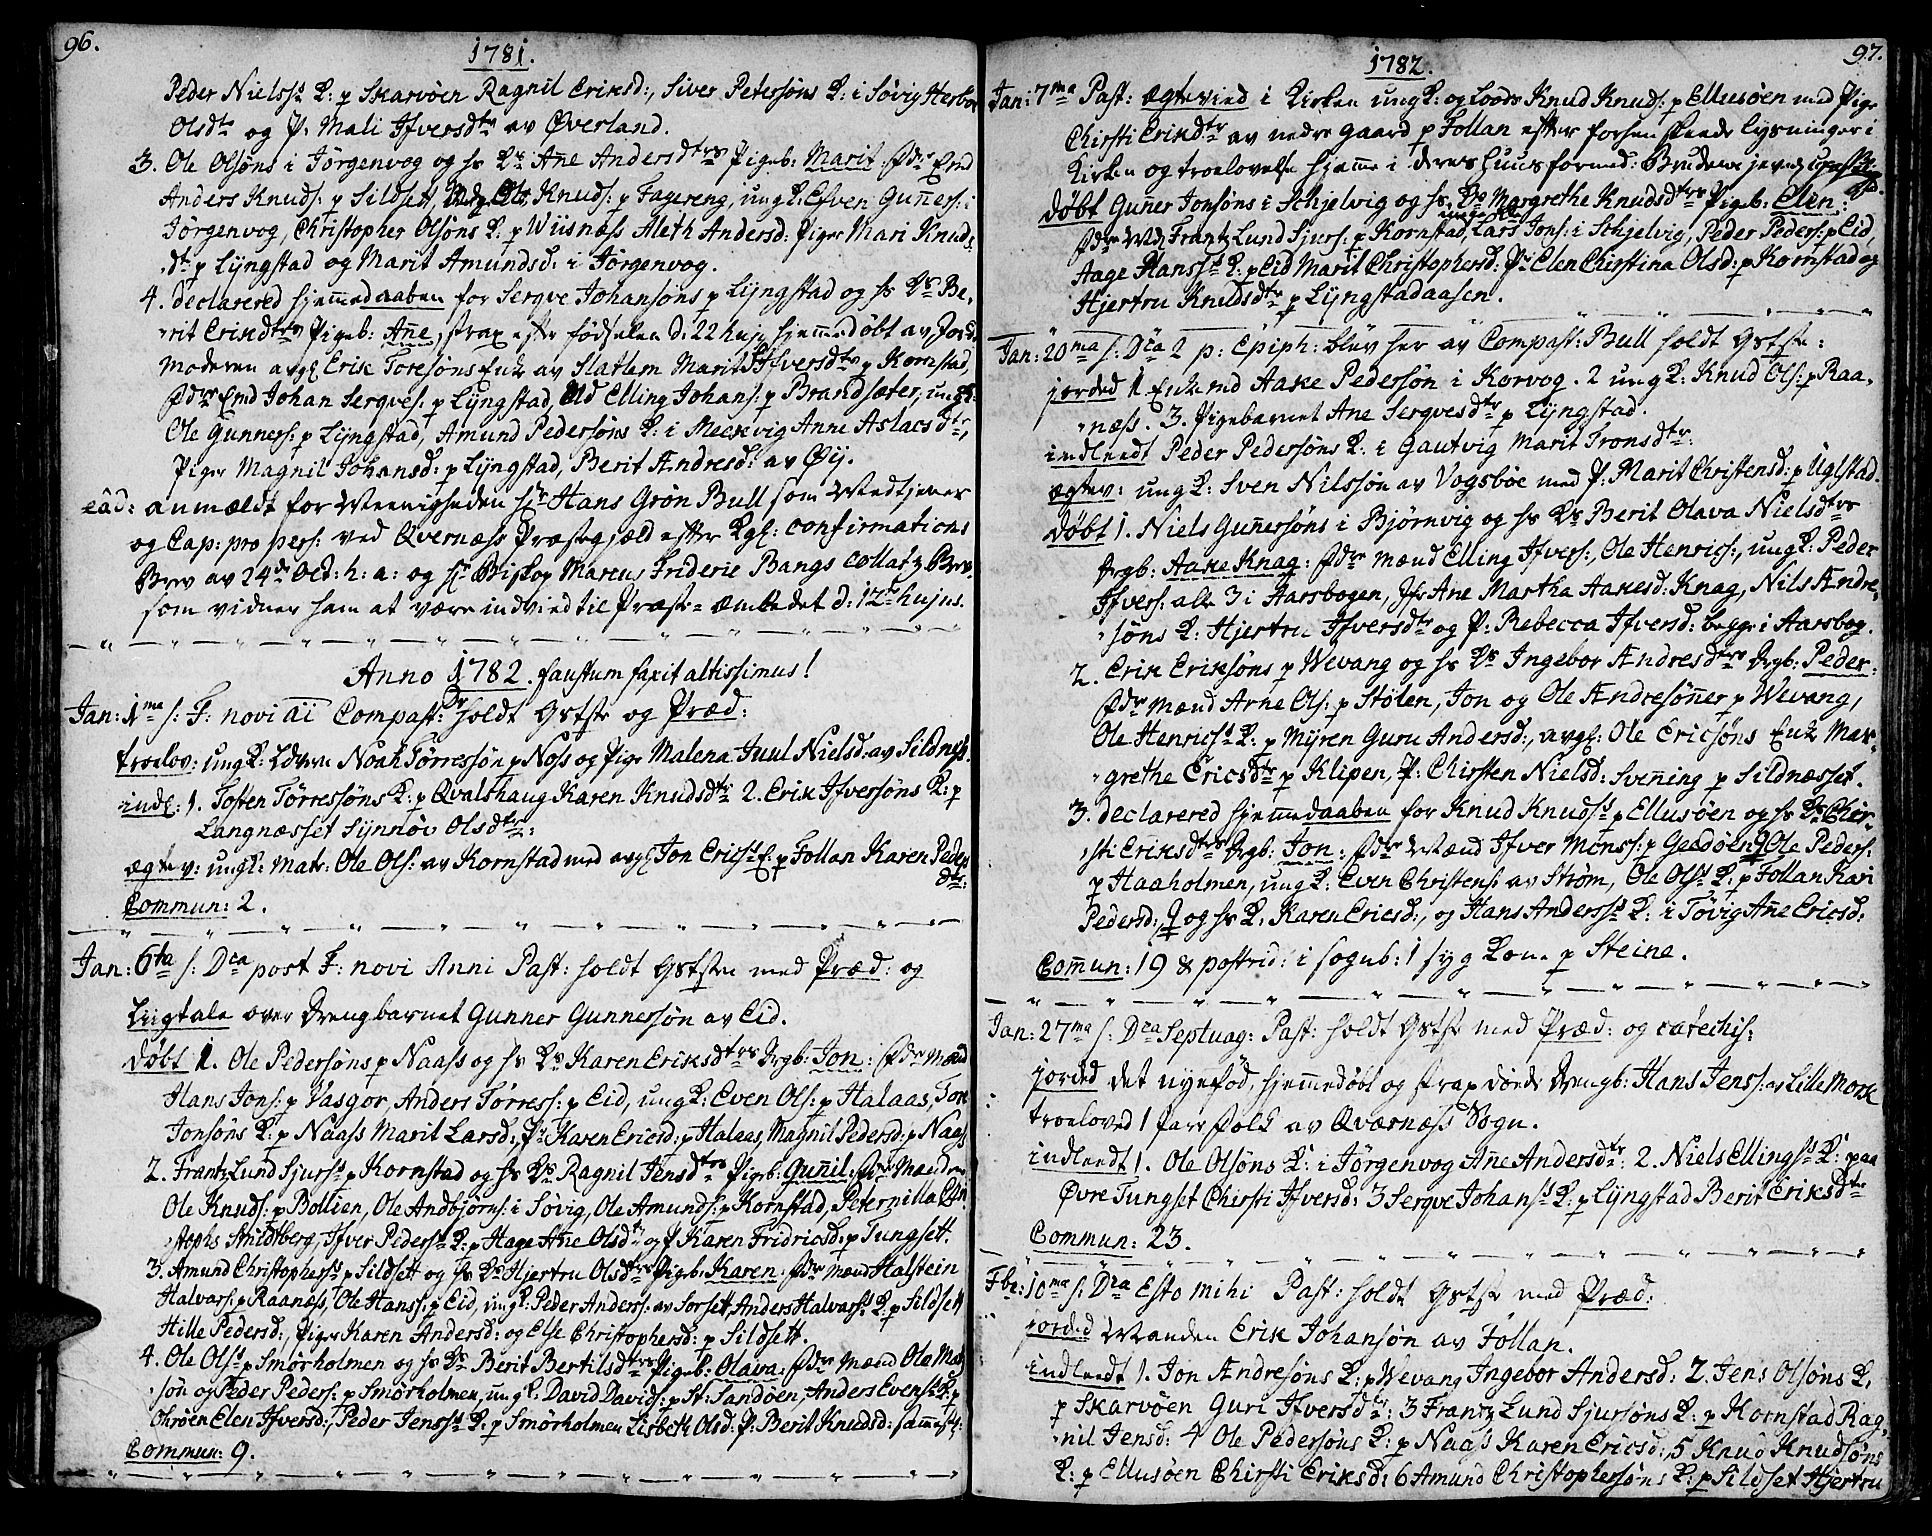 96.
1781.
Peder Nielss: K: p Skarvøen Ragnil Eriksd:, Siver Petersøns K: i Søvig Herbor
Olsdtr og P: Mali Ifversdtr av Øverland.
3. Ole Olsøns i Jørgenvog og hs Ke Ane Andersdtrs Pigeb: Marit: Fdre Emd
Anders Knuds: p Sildset, Ole Knuds: p Fagereng, ung K: Esven Guners: i
Jørgenvog, Christopher Olsøns K: p Wiisnæss Aleth Andersd: Piger Mari Knud:
dtr p Lyngstad og Marit Amundsd: i Jørgenvog.
4. declarered hjemmedaaben for Serqve Johansøns p Lyngstad og hs Ke Be,
rit Eriksdtrs Pigeb: Ane, strax efter fødselen d: 22 huj: hjemmedøbt av Jord
moderen avgl Erik Toresøns Enke av Slatlem Marit Ifversdtr p Kornstad,
Fdre Emd Johan Serqves: p Lyngstad, Md Elling Johans: p Brandsæter, ung K:
Ole Gunners: p Lyngstad, Amund Pedersøns K: i Meekvig Anne Aslacsdtr,
Piger Magnil Johansd: p Lyngstad, Berit Andresd: av Øij.
eâd: anmældt for Meenigheden Hr Hans Grøn Bull som Medtjener
og Cap: pro pers: ved Qvernæss Præstegjæld efter Kgl: confirmations
Brev av 24de Oct: h: a: og Hr Biskop Marcus Frideric Bangs collatz Brev
som vidner ham at være indviet til Præste-æmbedet d: 12te hujus.
Anno 1782. faustum faxit altissimus!
Jan: 1ma s: F: novi aii Compast: Br holdt Gstste og Præd:
troelov: ung K: Noah Tørressøn p Noss og Pige Malena Juul Nielsd: av Sildnes.
indl: 1. Tosten Tørressøns K: p Qvalshaug Karen Knudsdtr 2. Erik Ifversøns K: p
Langnæsset Synnøv Olsdtr:
ægtev: ung K: Matr: Ole Ols: av Kornstad med avgl Jon Erics E: p Follan Karen Peders
dtr:
Commun: 2.
Jan: 6ta s: Dca post F: novi Anni Past: holdt Gstste med Præd: og
Liigtale over Drengbarnet Gunner Gunnersøn av Eid.
Døbt 1. Ole Pedersøns p Naass og hs Ke Karen Eriksdtrs Drgb: Jon: Fdre Mænd
Hans Jons: p Vasgor, Anders Tørress: p Eid, ung K: Even Ols: p Halaas, Tore
Jonsøns K: p Naass Marit Larsd:, Pr Karen Ericsd: p Halaas, Magnil Pedersd: p Naass
2. Frantz Lund Sjurss: p Kornstad og hs Ke Ragnil Jensdtrs Pigeb: Gunil: Fdre Mændene
Ole Knuds: p Bollien, Ole Andbjørns: i Søvig, Ole Amunds: p Kornstad, Peternilla Chri
stophs Strudsberg, Ifver Peders K: p Hage Ane Olsdtr og P Karen Fridricsd: p Tungset.
3. Amund Christophers: p Sildset og hs Ke Hjertru Olsdtrs Pigeb: Karen: Fdre Mænd Halstein
Halvars: p Raanæss, Ole Hanss: p Eid, ung K: Peder Anders: av Sorset, Anders Halvars: K: p Sildset
Hille Pedersd:, Piger Karen Andersd: og Else Christophersd: p Sildset.
4. Ole Ols: p Smørholmen og hs Ke Berit Bertilsdtrs Pigeb: Olava: Fdre Mænd Ole Mat
søn og Peder Peders: p Smørholmen, ung K: David Davids: p St: Sandøen, Anders Evens K: p
Ohrøen Elen Ifversd:, Peder Jenss K: p Smørholmen Lisbeth Olsd: P: Berit Knudsd: samest:
Commun: 9.
97.
1782.
Jan: 7ma Past: ægtevied i Kirken ung K: og Loods Knud Knuds: p Ellusøen med Pige
Chirsti Eriksdtr av nedre gaard p Follan efter forhen skeede Lysninger i
Kirken og troelovelse hjemme i deres huus formed:
døbt Guner Jonsøns i Schjelvig og hs Ke Margrethe Knudsdtrs Pigeb: Elen:
Fdre Md Frantz Lund Sjurs: p Kornstad, unge Lars Jons: i Schjelvig, Peder Peders: p Eid,
Aage Hanss K: p Eid Marit Christophersd: Pr Elen Chirstina Olsd: p Kornstad og
Hjertru Knudsdtr p Lyngstadaasen.
Jan: 20ma s: Dca 2 p: Epiph: blev her av Compast: Bull holdt Gstste:
jorded 1 Enkemd Aake Pedersøn i Korvog. 2 ung K: Knud Ols: p Raa,
næss. 3. Pigebarnet Ane Serqvesdtr p Lyngstad.
indleedt Peder Pedersøns K: i Gautvig Marit Tronsdtr:
ægtev: ung K: Sven Nilssøn av Vogsbøe med P: Marit Christensd: p Uglstad.
Døbt 1. Niels Gunersøns i Bjørnvig og hs Ke Berit Olava Nielsdtrs
Drgb: Aake Knag: Fdre Mænd Elling Ifvers:, Ole Henrics:, ung K: Peder
Ifvers: alle 3 i Aarsbogen, Jfr Ane Martha Aakesd: Knag, Nils Andre,
søns K: Hjertru Ifversdtr og P: Rebecca Ifversd: begge i Aarsbog.
2. Erik Eriksøns p Wevang og hs Ke Ingebor Andresdtrs Drgb: Peder:
Fdre Mænd Arne Ols: p Stølen, Jon og Ole Andresønner p Wevang,
Ole Henrics K: p Myren Guru Andersd:, avgl: Ole Ericsøns Enke Mar,
grethe Ericsdtr p Klipen, P: Chirsten Nielsd: Svening p Sildnæsset.
3. declarered hjemmedaaben for Knud Knuds: p Ellusøen og hs Ke Chir,
sti Eriksdtrs Drgb: Jon: Fdre Mænd Ifver Mons: p Geedøen, Ole Peders:
p Haaholmen, ung K: Even Christens: av Strøm, Ole Ols K: p Follan Kari
Pedersd:, og hs K: Karen Ericsd:, og Hans Anderss K: i Tøvig Ane Ericsd:
Commun: 19 & postrid: i sognb: 1 syg Kone p Steine.
Jan: 27ma s: Dca Septuag: Past: holdt Gstste med Præd: og catechis:
jorded det nyefød, hjemmedøbt og strax døede Drengb: Hans Jens: av Lille Mork
troeloved 1 par Folk av Qvernæss Sogn.
indleedt 1. Ole Olsøns K: i Jørgenvog Ane Andersdtr: 2. Niels Ellings K: paa
Øvre Tungset Chirsti Ifversd: 3 Serqve Johans K: p Lyngstad Berit Eriksdtr
Commun: 23.
Fbr: 10ma s: Dca Esto mihi Past: holdt Gstste med Præd:
jorded Manden Erik Johansøn av Follan.
indleedt 1. Jon Andresøns K: p Wevang Ingebor Andersd: 2. Jens Olsøns K:
p Skarvøen Guri Ifversdtr: 3 Frantz Lund Sjursøns K: p Kornstad Rag,
nil Jensd: 4 Ole Pedersøns K: p Naass Karen Ericsd: 5 Knud Knudsøns
K: p Ellusøen Chirsti Eriksd: 6 Amund Christophersøns K: p Sildset Hjertru